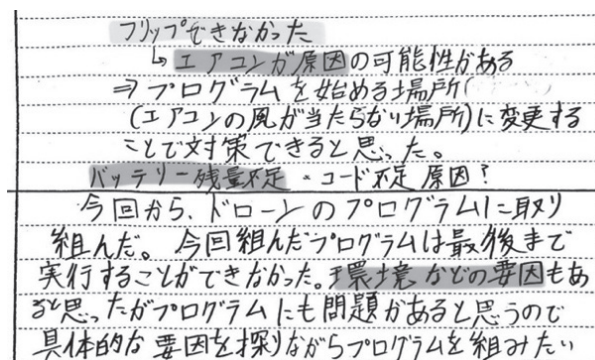 フリップできなかった
↳ エアコンが原因の可能性がある
⇒ プログラムを始める場所
(エアコンの風が当たらない場所)に変更する
ことで対策できると思った。
バッテリー残量不足・コード不足 原因？
今回から、ドローンのプログラムに取り
組んだ。今回組んだプログラムは最後まで
実行することができなかった。環境などの要因もあ
ると思ったがプログラムにも問題があると思うので
具体的な要因を探りながらプログラムを組みたい